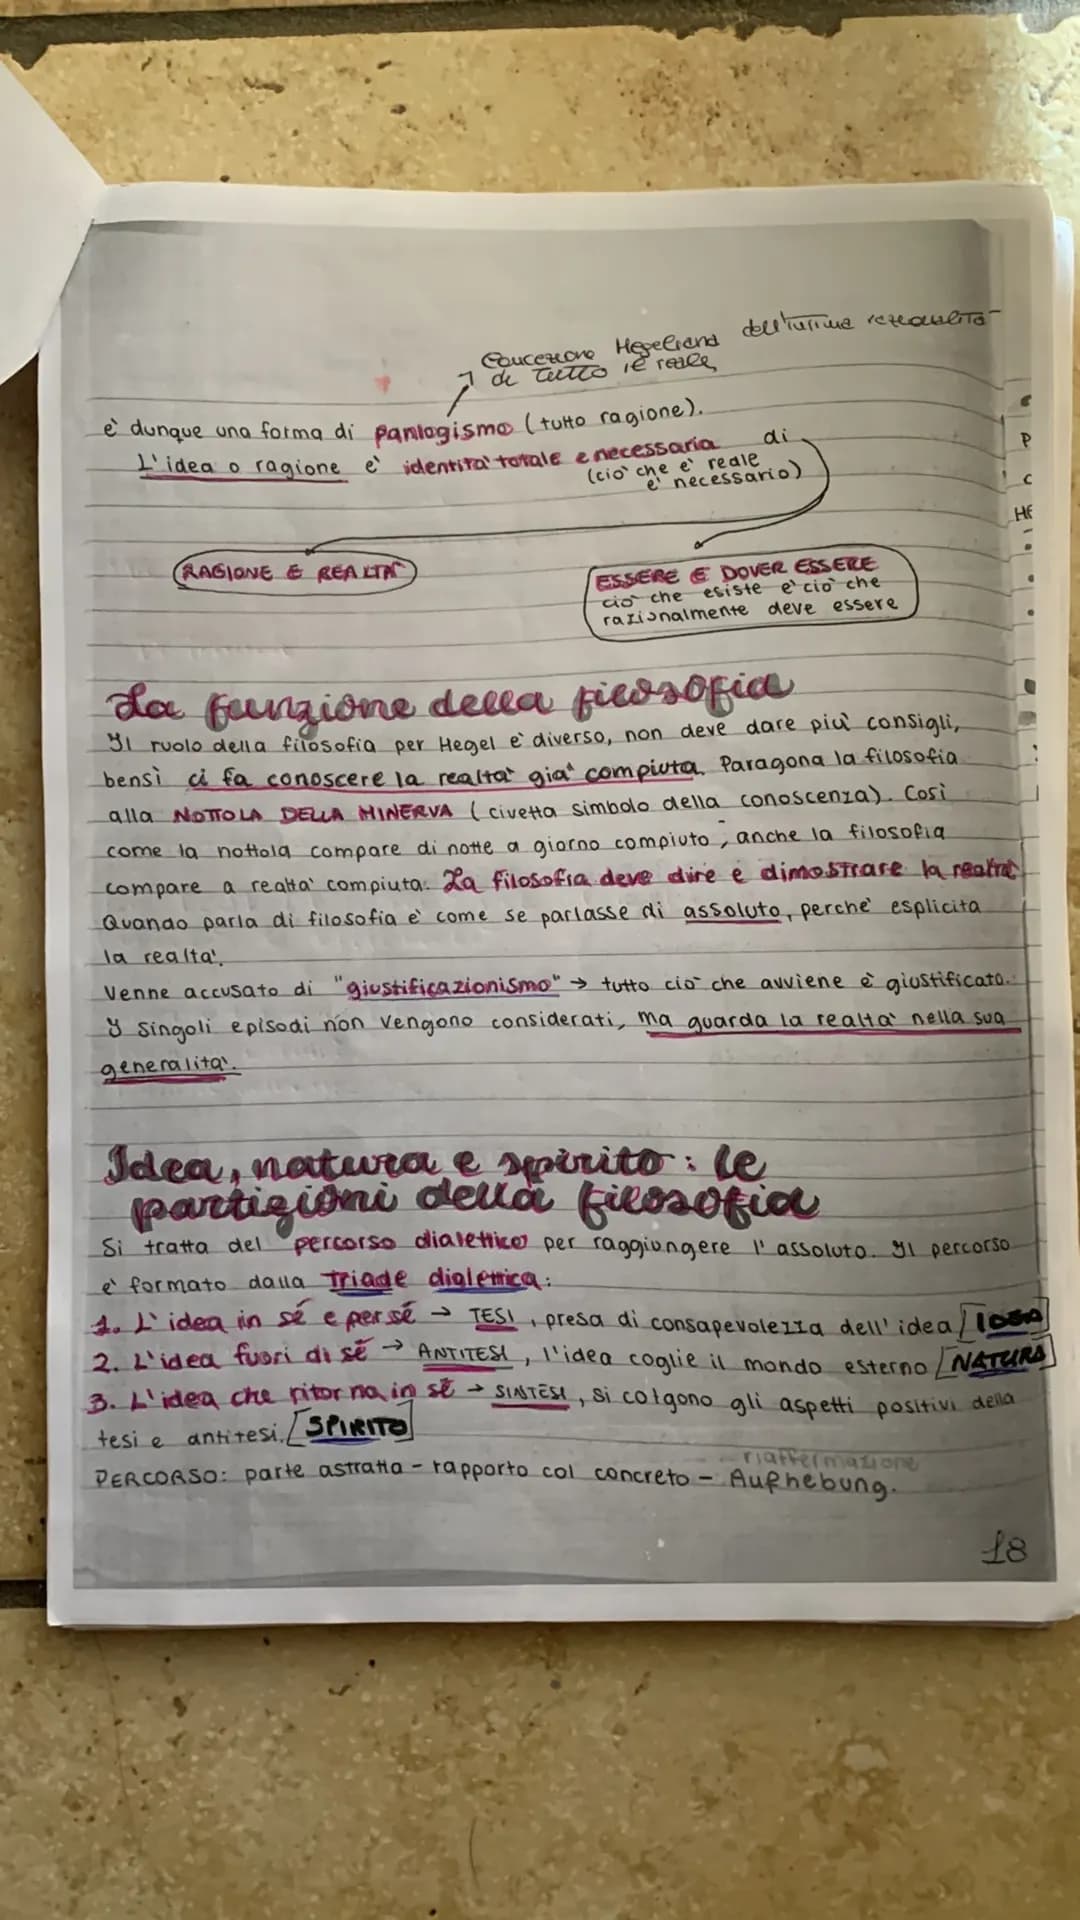 Concezione Hegeliana dell'ultima razionalità
di tutto il reale
è dunque una forma di panlogismo (tutto ragione).
L'idea o ragione è identità totale e necessaria di
(ciò che è reale
è necessario)
RAGIONE E REALTÀ
ESSERE E DOVER ESSERE
ciò che esiste è ciò che
razionalmente deve essere
La funzione della filosofia
Il ruolo della filosofia per Hegel è diverso, non deve dare più consigli,
bensì ci fa conoscere la realtà già compiuta. Paragona la filosofia
alla NOTTOLA DELLA MINERVA (civetta simbolo della conoscenza). Così
come la nottola compare di notte a giorno compiuto, anche la filosofia
compare a realtà compiuta. La filosofia deve dire e dimostrare la realtà
Quando parla di filosofia è come se parlasse di assoluto, perché esplicita
la realtà.
Venne accusato di "giustificazionismo" → tutto ciò che avviene è giustificato.
I singoli episodi non vengono considerati, ma guarda la realtà nella sua
generalità.
Idea, natura e spirito: le
partizioni della filosofia
Si tratta del percorso dialettico per raggiungere l'assoluto. Il percorso
è formato dalla triade dialettica:
1. L'idea in sé e per sé → TESI, presa di consapevolezza dell'idea [IDEA]
2. L'idea fuori di sé → ANTITESI, l'idea coglie il mondo esterno [NATURA]
3. L'idea che ritorna in sé → SINTESI, si colgono gli aspetti positivi della
tesi e antitesi. [SPIRITO]
riaffermazione
PERCORSO: parte astratta - rapporto col concreto - Aufhebung.
18
P
C
HE